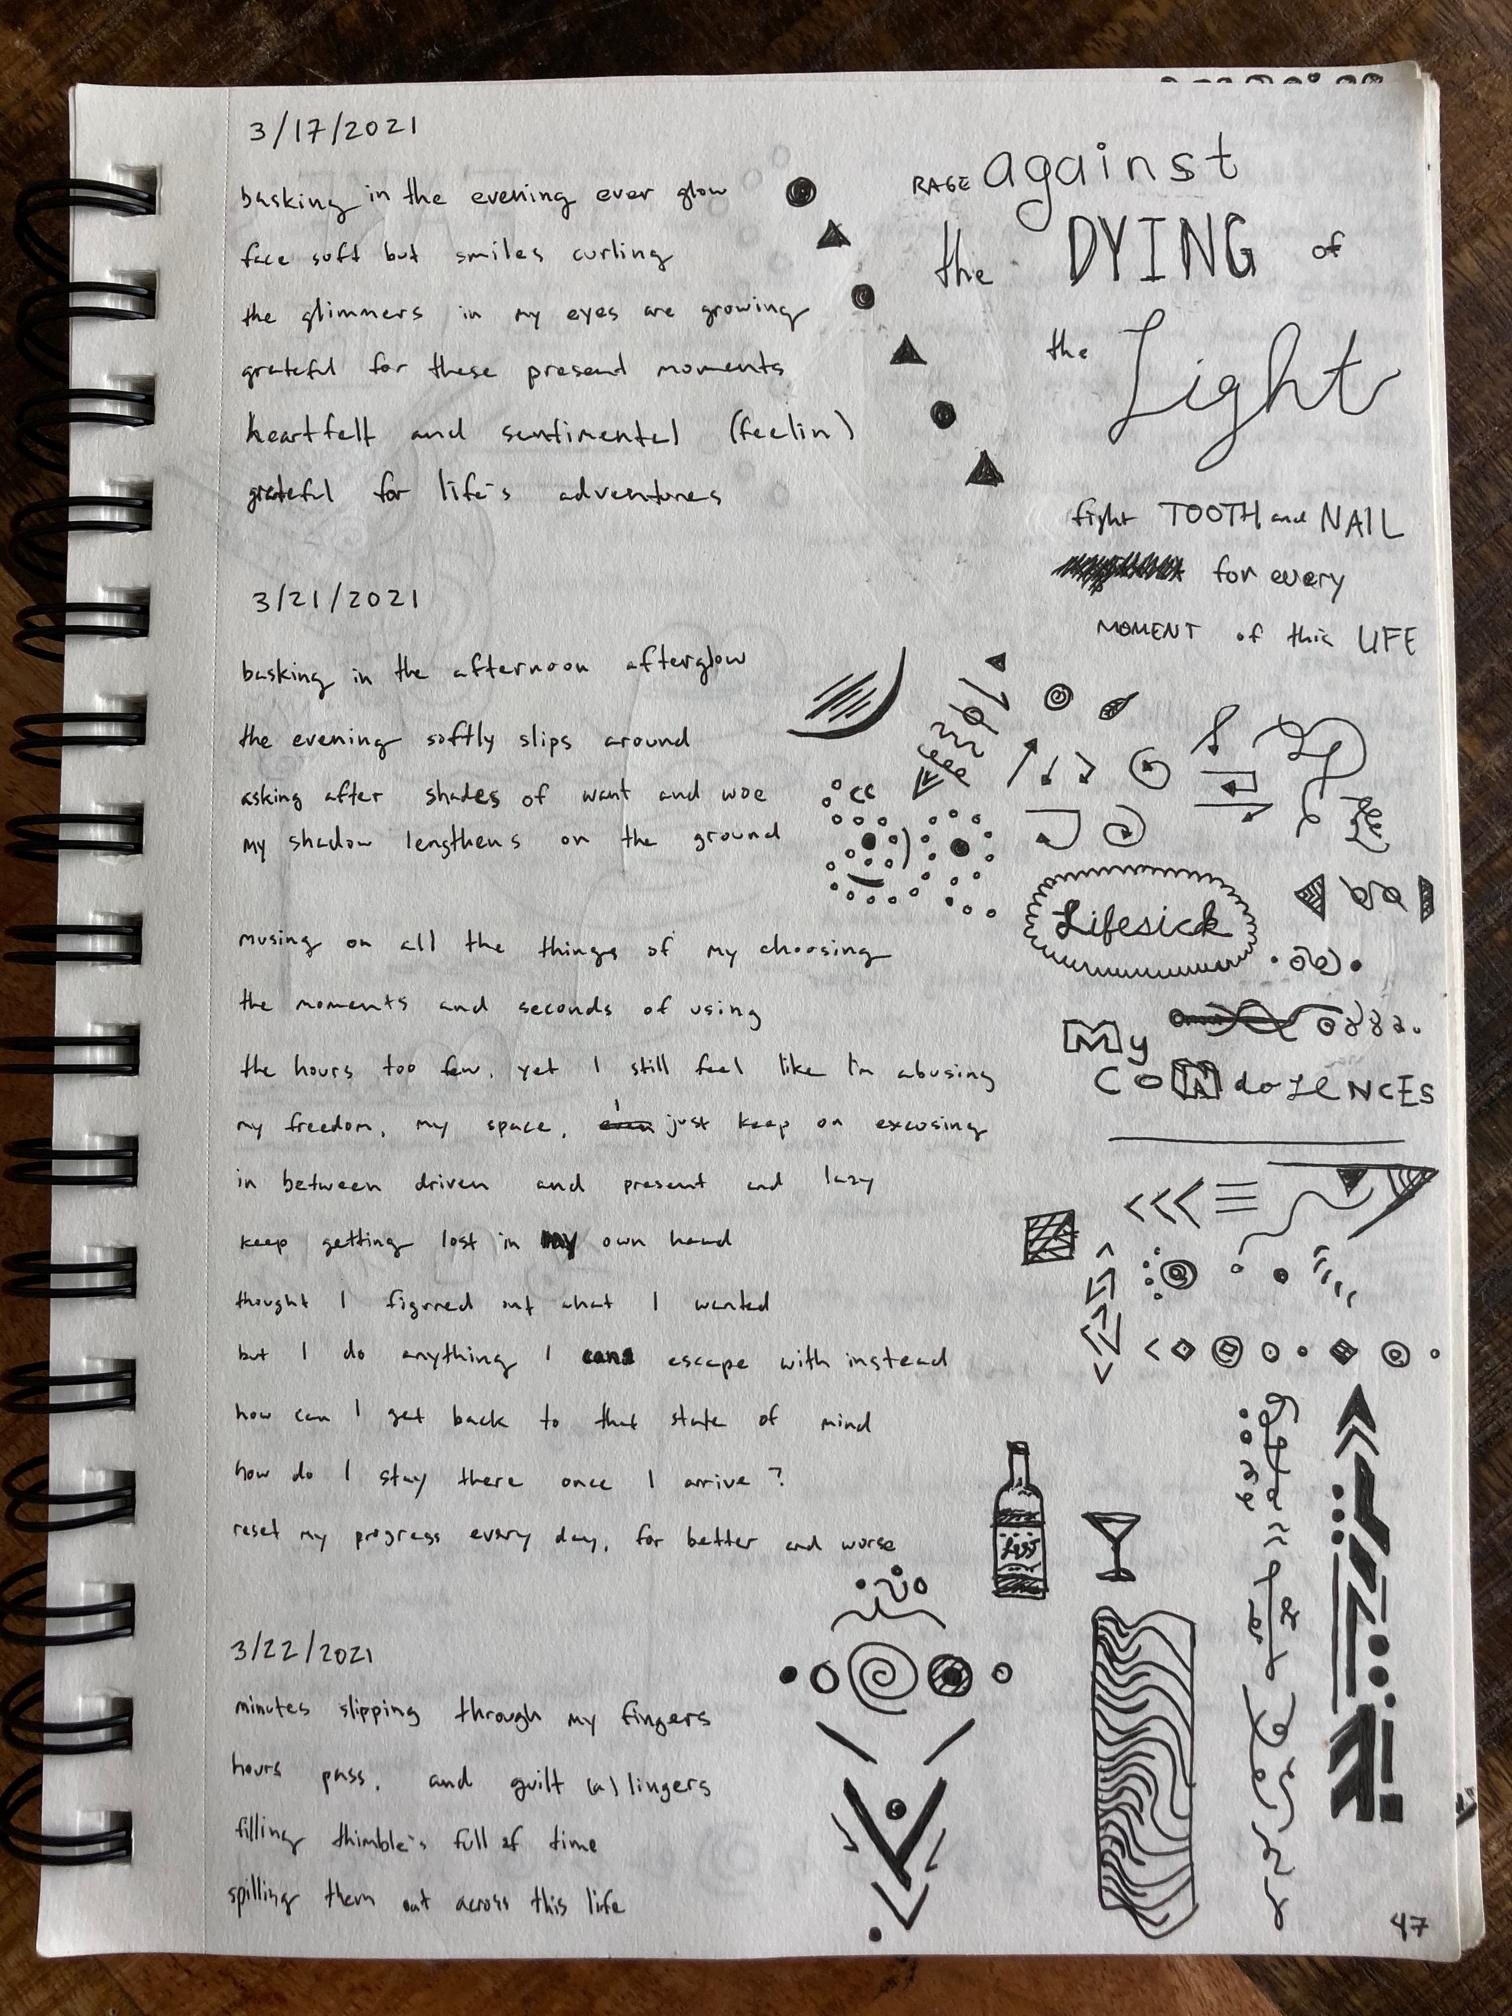 3/17/2021
basking in the evening ever glow
face soft but smiles curling
the glimmers in my eyes are growing
grateful for these present moments
heartfelt and sentimental (feelin)
grateful for life's adventures
3/21/2021
basking in the afternoon afterglow
the evening softly slips around
asking after shades of want and woe
my shadow lengthens on the ground
musing on all the things of my choosing
the moments and seconds of using
the hours too few, yet I still feel like I'm abusing
my freedom, my space, I just keep on excusing
in between driven and present and lazy
keep getting lost in my own head
thought I figured out what I wanted
but I do anything I can escape with instead
how can I get back to that state of mind
how do I stay there once I arrive?
reset my progress every day, for better and worse
3/22/2021
minutes slipping through my fingers
hours pass, and guilt (a) lingers
filling thimble's full of time
spilling them out across this life
RAGE against
the DYING of
the Light
fight TOOTH and NAIL
for every
MOMENT of this LIFE
Lifesick
My
CONdoLENCES
47